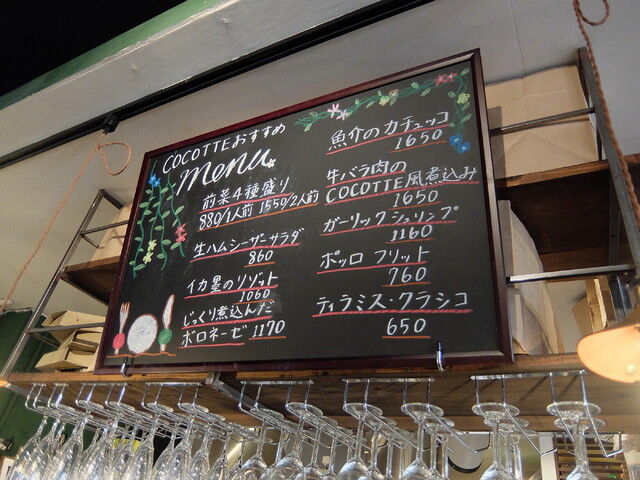 COCOTTEおすすめ
menu
前菜4種盛り
880/1人前 1550/2人前
生ハムシーザーサラダ
860
イカ墨のリゾット
1060
じっくり煮込んだ
ボロネーゼ 1170
魚介のカチュッコ
1650
牛バラ肉の
COCOTTE風煮込み
1650
ガーリックシュリンプ
1160
ポッロ フリット
760
ティラミス・クラシコ
650